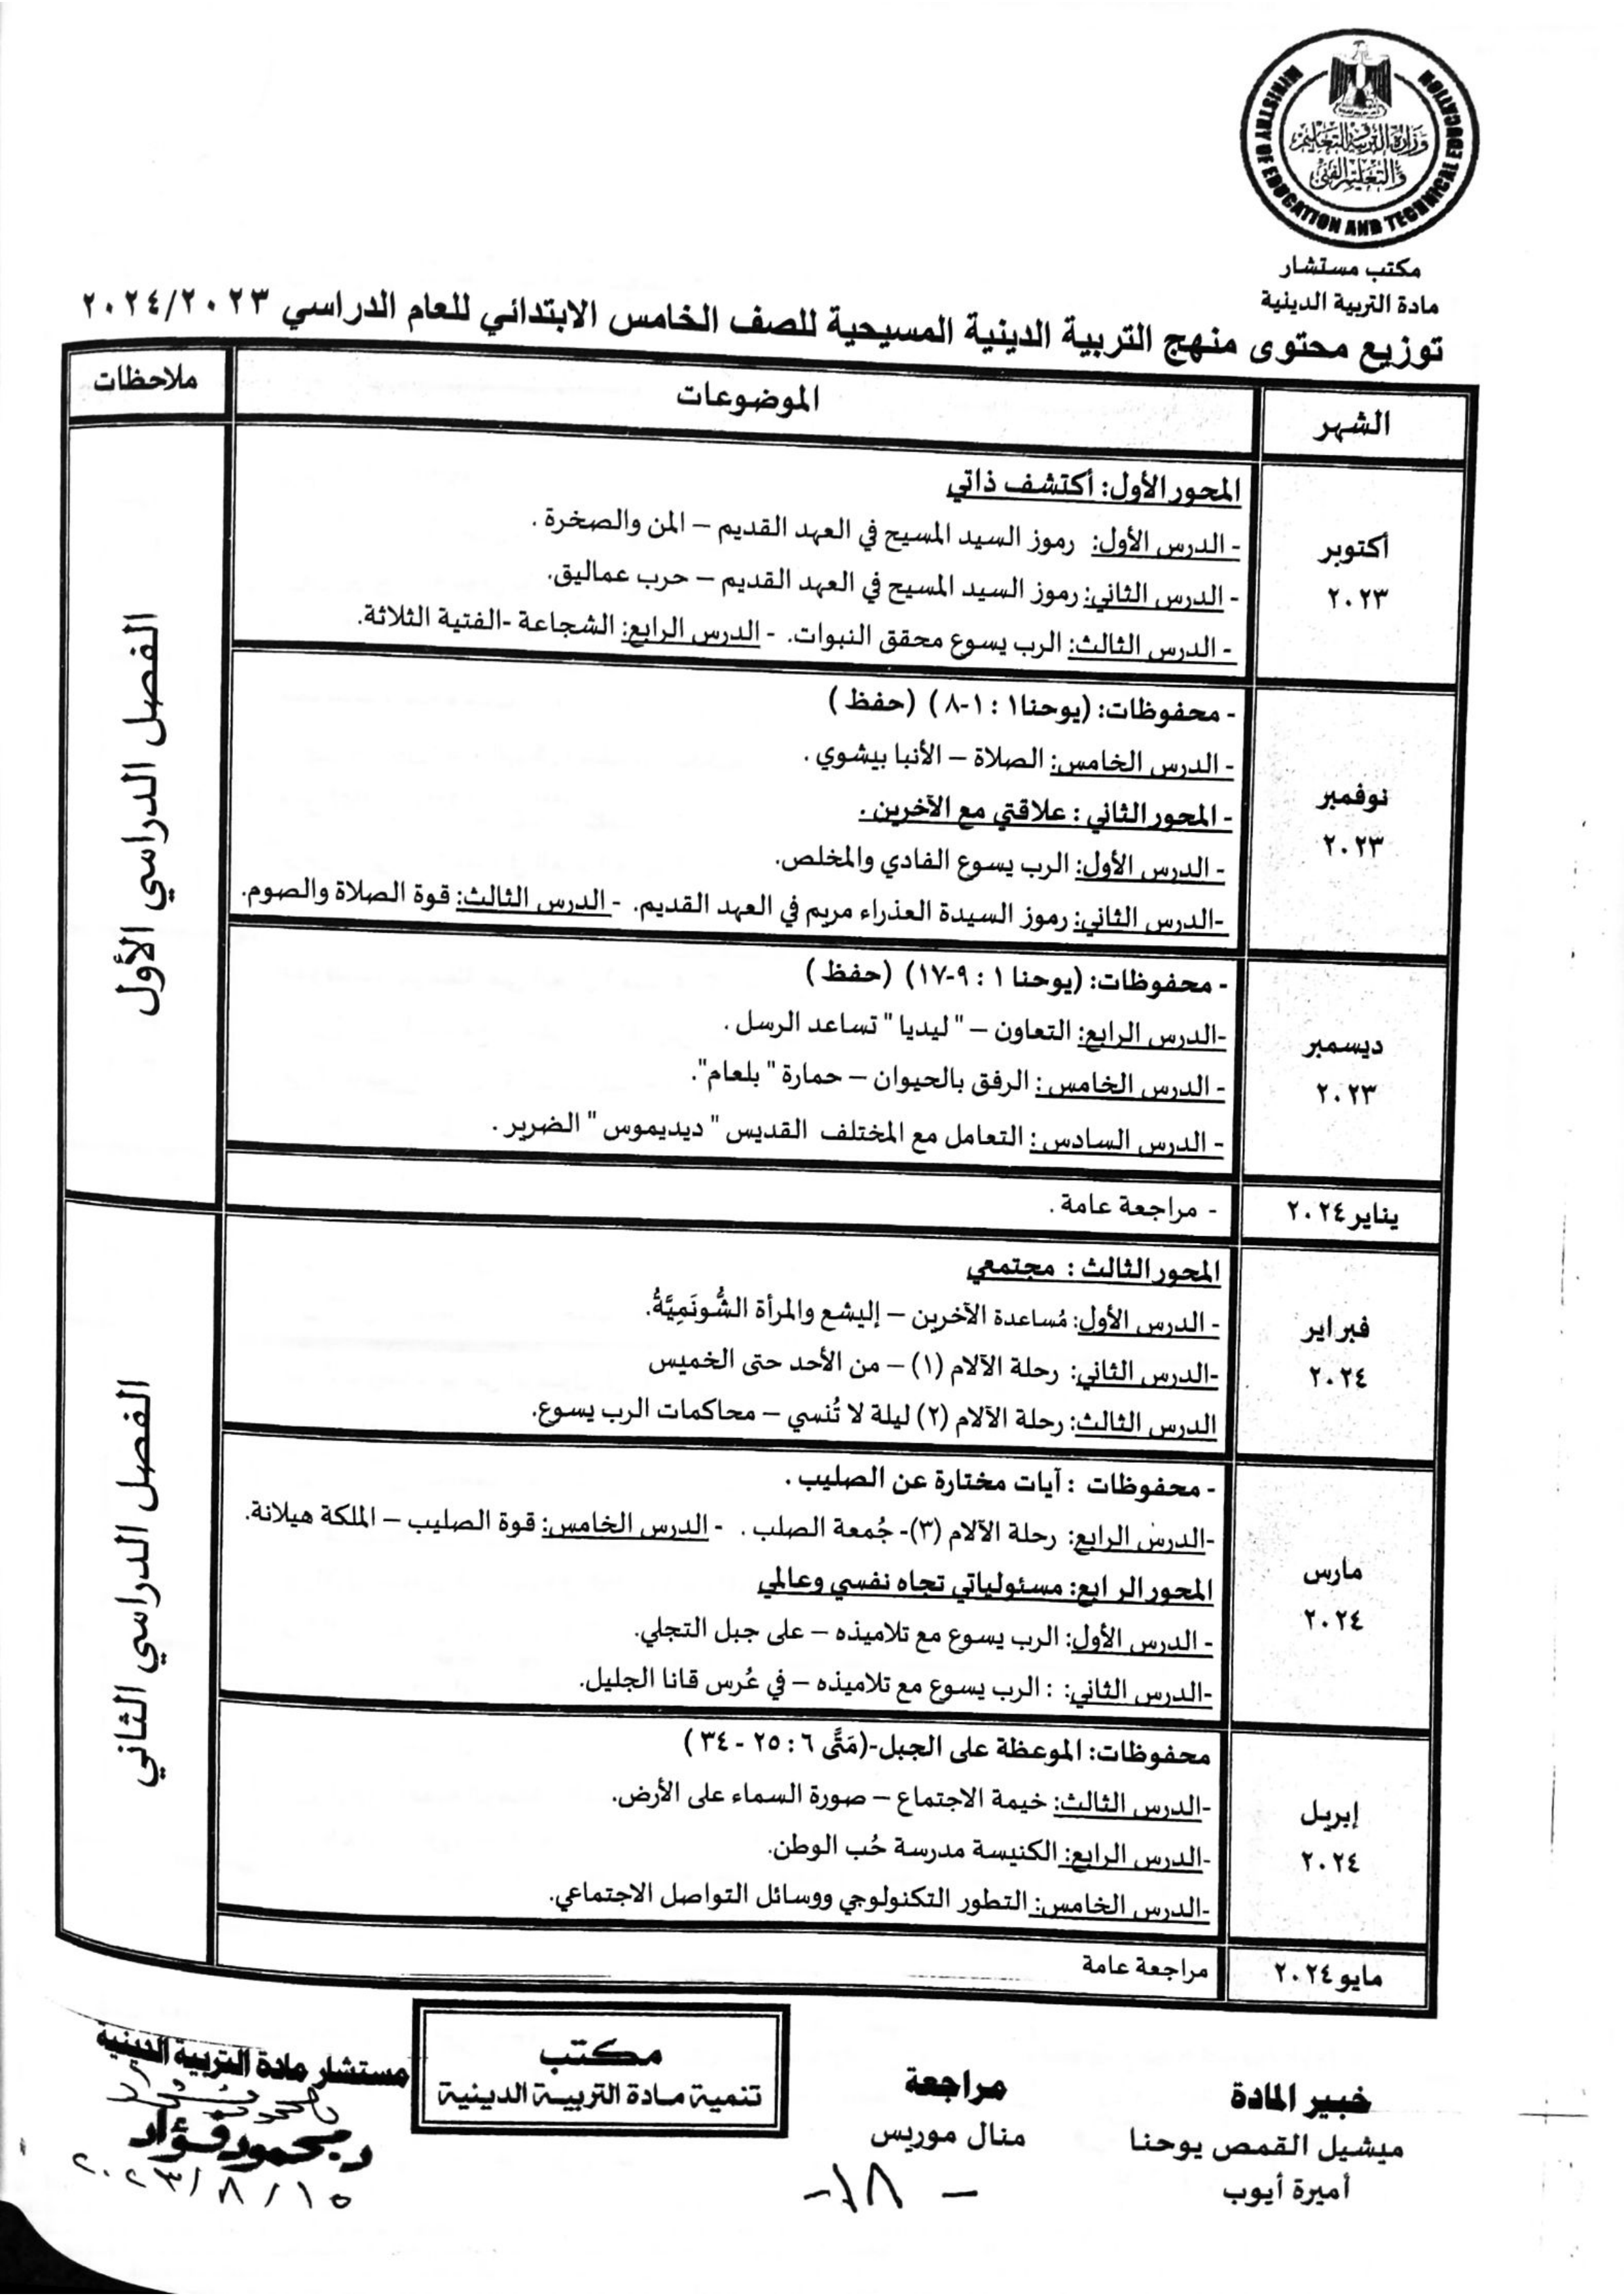 وزارة التربية والتعليم
والتعليم الفني
MINISTRY OF EDUCATION AND TECHNICAL EDUCATION
مكتب مستشار
مادة التربية الدينية
توزيع محتوى منهج التربية الدينية المسيحية للصف الخامس الابتدائي للعام الدراسي ٢٠٢٤/٢٠٢٣
الشهر
الموضوعات
ملاحظات
أكتوبر
٢٠٢٣
المحور الأول: أكتشف ذاتي
- الدرس الأول: رموز السيد المسيح في العهد القديم – المن والصخرة .
- الدرس الثاني: رموز السيد المسيح في العهد القديم – حرب عماليق.
- الدرس الثالث: الرب يسوع محقق النبوات. - الدرس الرابع: الشجاعة -الفتية الثلاثة.
الفصل الدراسي الأول
نوفمبر
٢٠٢٣
- محفوظات: (يوحنا١ : ١-٨ ) (حفظ )
- الدرس الخامس: الصلاة – الأنبا بيشوي .
- المحور الثاني : علاقتي مع الآخرين .
- الدرس الأول: الرب يسوع الفادي والمخلص.
-الدرس الثاني: رموز السيدة العذراء مريم في العهد القديم. - الدرس الثالث: قوة الصلاة والصوم.
ديسمبر
٢٠٢٣
- محفوظات: (يوحنا ١ : ٩-١٧) (حفظ )
-الدرس الرابع: التعاون – " ليديا " تساعد الرسل .
- الدرس الخامس : الرفق بالحيوان – حمارة " بلعام".
- الدرس السادس : التعامل مع المختلف القديس " ديديموس " الضرير .
يناير ٢٠٢٤
- مراجعة عامة .
فبراير
٢٠٢٤
المحور الثالث : مجتمعي
- الدرس الأول: مُساعدة الآخرين – إليشع والمرأة الشُّونَمِيَّةُ.
-الدرس الثاني: رحلة الآلام (١) – من الأحد حتى الخميس
الدرس الثالث: رحلة الآلام (٢) ليلة لا تُنسي – محاكمات الرب يسوع.
الفصل الدراسي الثاني
مارس
٢٠٢٤
- محفوظات : آيات مختارة عن الصليب .
-الدرس الرابع: رحلة الآلام (٣)- جُمعة الصلب . - الدرس الخامس: قوة الصليب – الملكة هيلانة.
المحور الرابع: مسئولياتي تجاه نفسي وعالمي
- الدرس الأول: الرب يسوع مع تلاميذه – على جبل التجلي.
-الدرس الثاني: : الرب يسوع مع تلاميذه – في عُرس قانا الجليل.
إبريل
٢٠٢٤
محفوظات: الموعظة على الجبل-(مَتَّى ٦ : ٢٥ - ٣٤ )
-الدرس الثالث: خيمة الاجتماع – صورة السماء على الأرض.
-الدرس الرابع: الكنيسة مدرسة حُب الوطن.
-الدرس الخامس: التطور التكنولوجي ووسائل التواصل الاجتماعي.
مايو ٢٠٢٤
مراجعة عامة
خبير المادة
ميشيل القمص يوحنا
أميرة أيوب
مراجعة
منال موريس
مكتب
تنمية مادة التربية الدينية
مستشار مادة التربية الدينية
د.محمود فؤاد
٢٠٢٣/٨/١٥
- ١٨ -